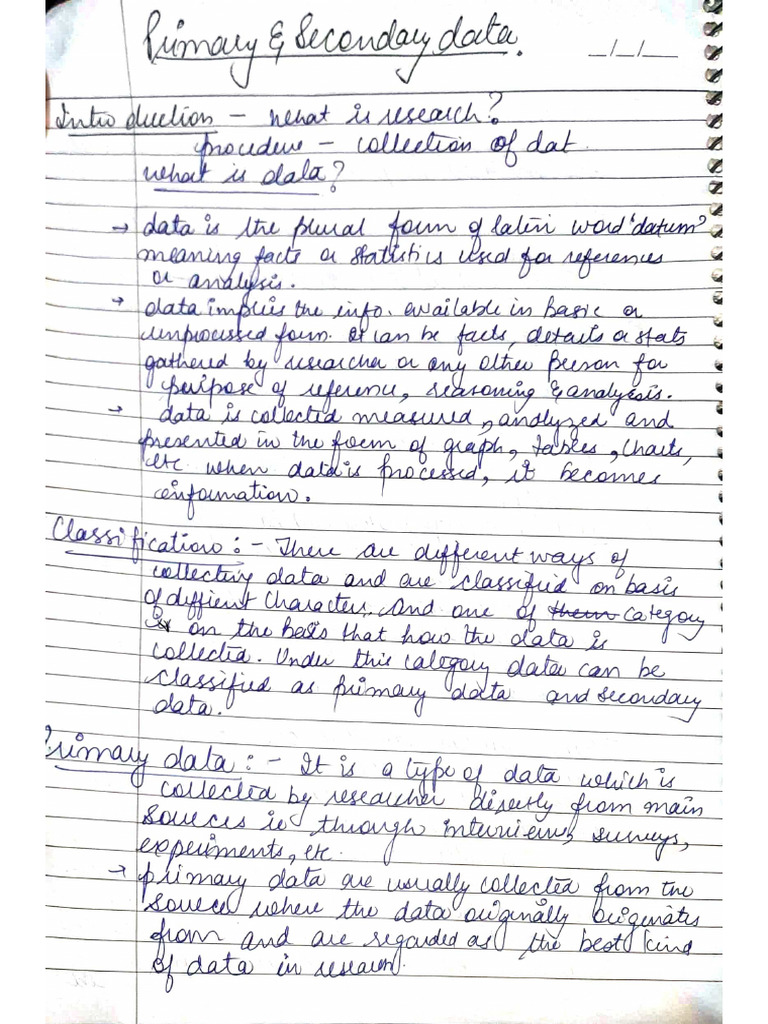 Primary & Secondary data.
_/_/__
Introduction - What is research?
procedure - collection of dat
What is data?
→ data is the plural form of latin word 'datum'
meaning facts or statistics used for references
or analysis.
→ data implies the info. available in basic or
unprocessed form. It can be facts, details or stats
gathered by researcher or any other person for
purpose of reference, reasoning & analysis.
→ data is collected measured, analyzed and
presented in the form of graph, tables, charts,
etc. when data is processed, it becomes
information.
Classification :- There are different ways of
collecting data and are classified on basis
of diffient characters, And one of them category
is on the basis that how the data is
collected. Under this category data can be
classified as primary data and secondary
data.
Primary data :- It is a type of data which is
collected by researcher directly from main
sources ie through interviews, surveys,
experiments, etc.
→ primary data are usually collected from the
source where the data originally originates
from and are regarded as the best kind
of data in research.